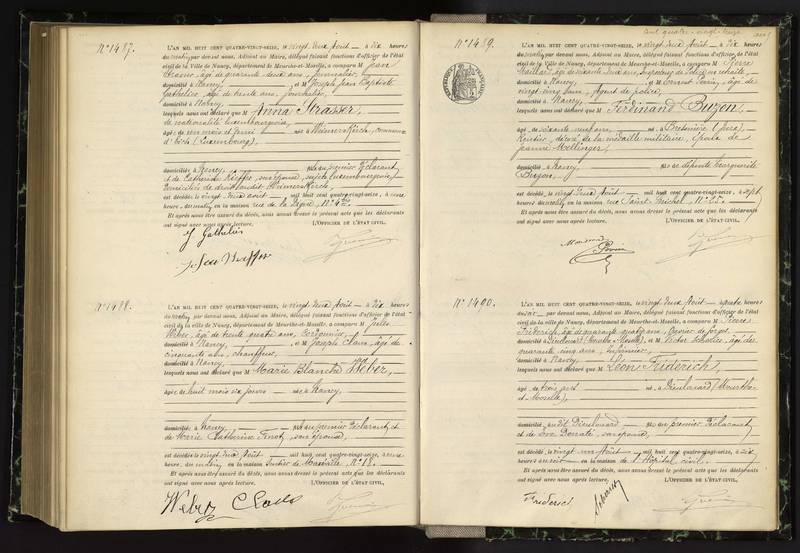 N° 1487.
L'AN MIL HUIT CENT QUATRE-VINGT-SEIZE, le vingt deux Août — à dix heures
du matin, par devant nous, Adjoint au Maire, délégué faisant fonctions d'officier de l'état
civil de la Ville de Nancy, département de Meurthe-et-Moselle, a comparu M
Strasser, âgé de quarante deux ans, journalier,
domicilié à Nancy, et M Joseph Jean Baptiste
Gathelier, âgé de trente ans, journalier,
domicilié à Nancy,
lesquels nous ont déclaré que M Anna Strasser,
de nationalité luxembourgeoise,
âgée de un mois et demi née à Heinerscheid, commune
(Luxembourg),
domiciliée à Nancy, fille du premier déclarant
et de Catherine son épouse, sujets luxembourgeois,
domiciliés de droit audit
est décédée le vingt un août — mil huit cent quatre-vingt-seize, à onze
heures du matin, en la maison rue de la N° 4
Et après nous être assuré du décès, nous avons dressé le présent acte que les déclarants
ont signé avec nous après lecture. L'OFFICIER DE L'ÉTAT CIVIL,
J Gathelier
N° 1488.
L'AN MIL HUIT CENT QUATRE-VINGT-SEIZE, le vingt deux Août — à dix heures
du matin, par devant nous, Adjoint au Maire, délégué faisant fonctions d'officier de l'état
civil de la ville de Nancy, département de Meurthe-et-Moselle, a comparu M Jules
Weber, âgé de trente quatre ans, Cordonnier,
domicilié à Nancy, et M Joseph Claus, âgé de
cinquante ans, chauffeur,
domicilié à Nancy,
lesquels nous ont déclaré que M Marie Blanche Weber,
âgée de huit mois six jours — née à Nancy,
domiciliée à Nancy — fille du premier déclarant et
de Marie Catherine Finot, son épouse,
est décédée le vingt deux Août — mil huit cent quatre-vingt-seize, à une
heure du matin, en la maison sentier de Maxéville, N° 18.
Et après nous être assuré du décès, nous avons dressé le présent acte que les déclarants
ont signé avec nous après lecture. L'OFFICIER DE L'ÉTAT CIVIL,
Weber Claus
cent quatre-vingt-seize
N° 1489.
RÉPUBLIQUE FRANÇAISE
L'AN MIL HUIT CENT QUATRE-VINGT-SEIZE, le vingt deux Août — à dix heures
du matin, par devant nous, Adjoint au Maire, délégué faisant fonctions d'officier de l'état
civil de la Ville de Nancy, département de Meurthe-et-Moselle, a comparu M Pierre
Maillard, âgé de soixante deux ans, Inspecteur de police en retraite,
domicilié à Nancy, et M Ernest Perrin, âgé de
vingt cinq ans, Agent de police,
domicilié à Nancy,
lesquels nous ont déclaré que M Ferdinand Buzon,
âgé de soixante neuf ans né à
Rentier, décoré de la médaille militaire, époux de
Jeanne Mellinger,
domicilié à Nancy, fils de défunte Marguerite
Buzon,
est décédé le vingt deux Août — mil huit cent quatre-vingt-seize, à sept
heures du matin, en la maison rue Saint Michel, N° 25.
Et après nous être assuré du décès, nous avons dressé le présent acte que les déclarants
ont signé avec nous après lecture. L'OFFICIER DE L'ÉTAT CIVIL,
Perrin
N° 1490.
L'AN MIL HUIT CENT QUATRE-VINGT-SEIZE, le vingt deux Août — à quatre heures
du soir, par devant nous, Adjoint au Maire, délégué faisant fonctions d'officier de l'état
civil de la ville de Nancy, département de Meurthe-et-Moselle, a comparu M Pierre
Friderich, âgé de quarante quatre ans, Ouvrier de forges,
domicilié à Dieulouard (Meurthe & Moselle), et M Victor Scharlin, âgé de
quarante cinq ans, infirmier,
domicilié à Nancy,
lesquels nous ont déclaré que M Léon Friderich,
âgé de trois ans né à Dieulouard (Meurthe
et Moselle),
domicilié audit Dieulouard — fils du premier déclarant
et de son épouse,
est décédé le vingt un Août — mil huit cent quatre-vingt-seize, à six
heures du soir — en la maison de l'Hôpital civil.
Et après nous être assuré du décès, nous avons dressé le présent acte que les déclarants
ont signé avec nous après lecture. L'OFFICIER DE L'ÉTAT CIVIL,
Friderich